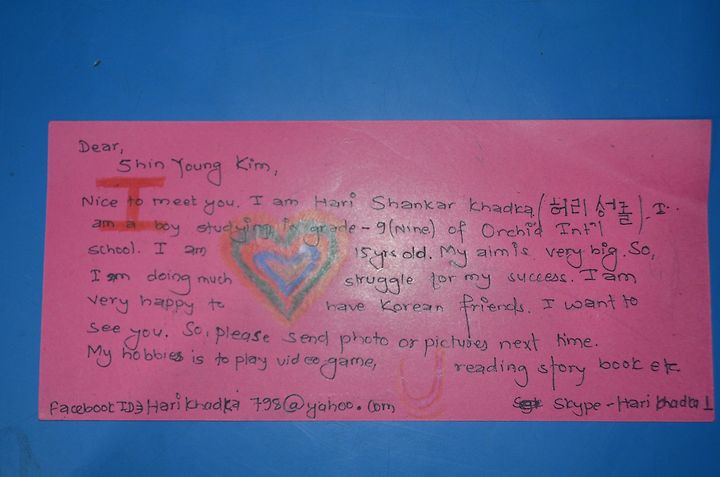 Dear,
Shin Young Kim,
Nice to meet you. I am Hari Shankar Khadka (허리 성콜). I
am a boy studying in grade-9(Nine) of Orchid Int'l
school. I am 15yrs old. My aim is very big. So,
I am doing much struggle for my success. I am
very happy to have Korean friends. I want to
see you. So, please send photo or pictures next time.
My hobbies is to play video game, reading story book etc
I
U
Facebook ID Hari khadka 798@yahoo.com
Skype-Hari khadka 1